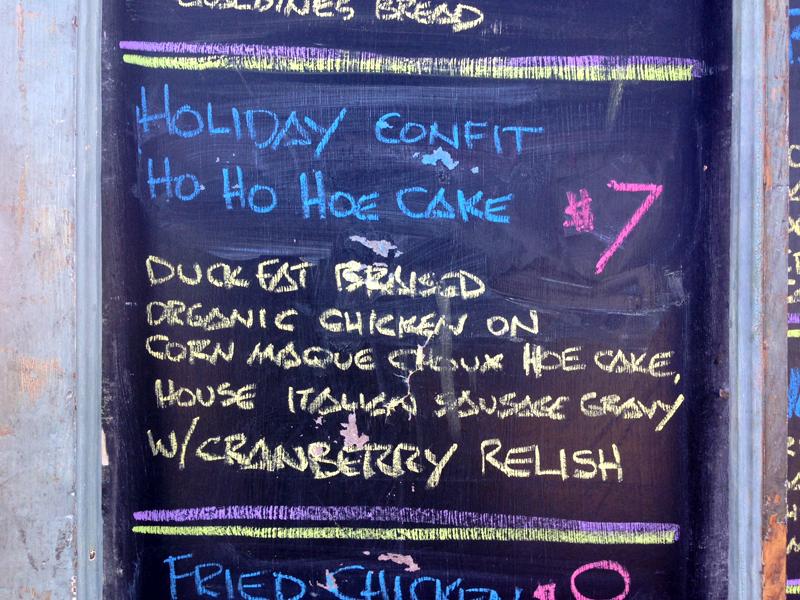 BREAD
HOLIDAY CONFIT
HO HO HOE CAKE $7
DUCK FAT BRAISED
ORGANIC CHICKEN ON
CORN MAQUE CHOUX HOE CAKE,
HOUSE ITALIAN SAUSAGE GRAVY
W/CRANBERRY RELISH
FRIED CHICKEN